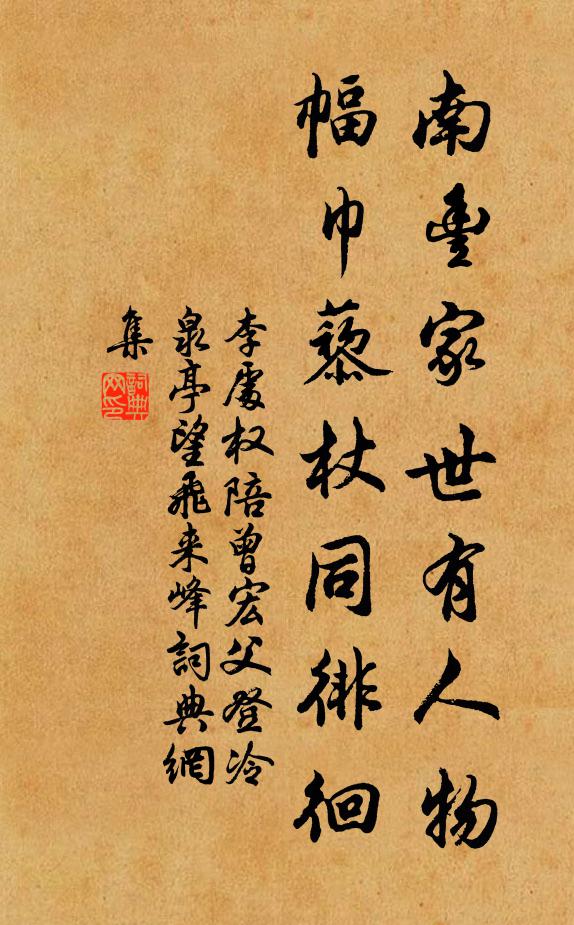 南豊家世有人物
幅巾藜杖同徘徊
李處权陪曾宏父登冷
泉亭望飛来峰詞典網
集
詞典
网印